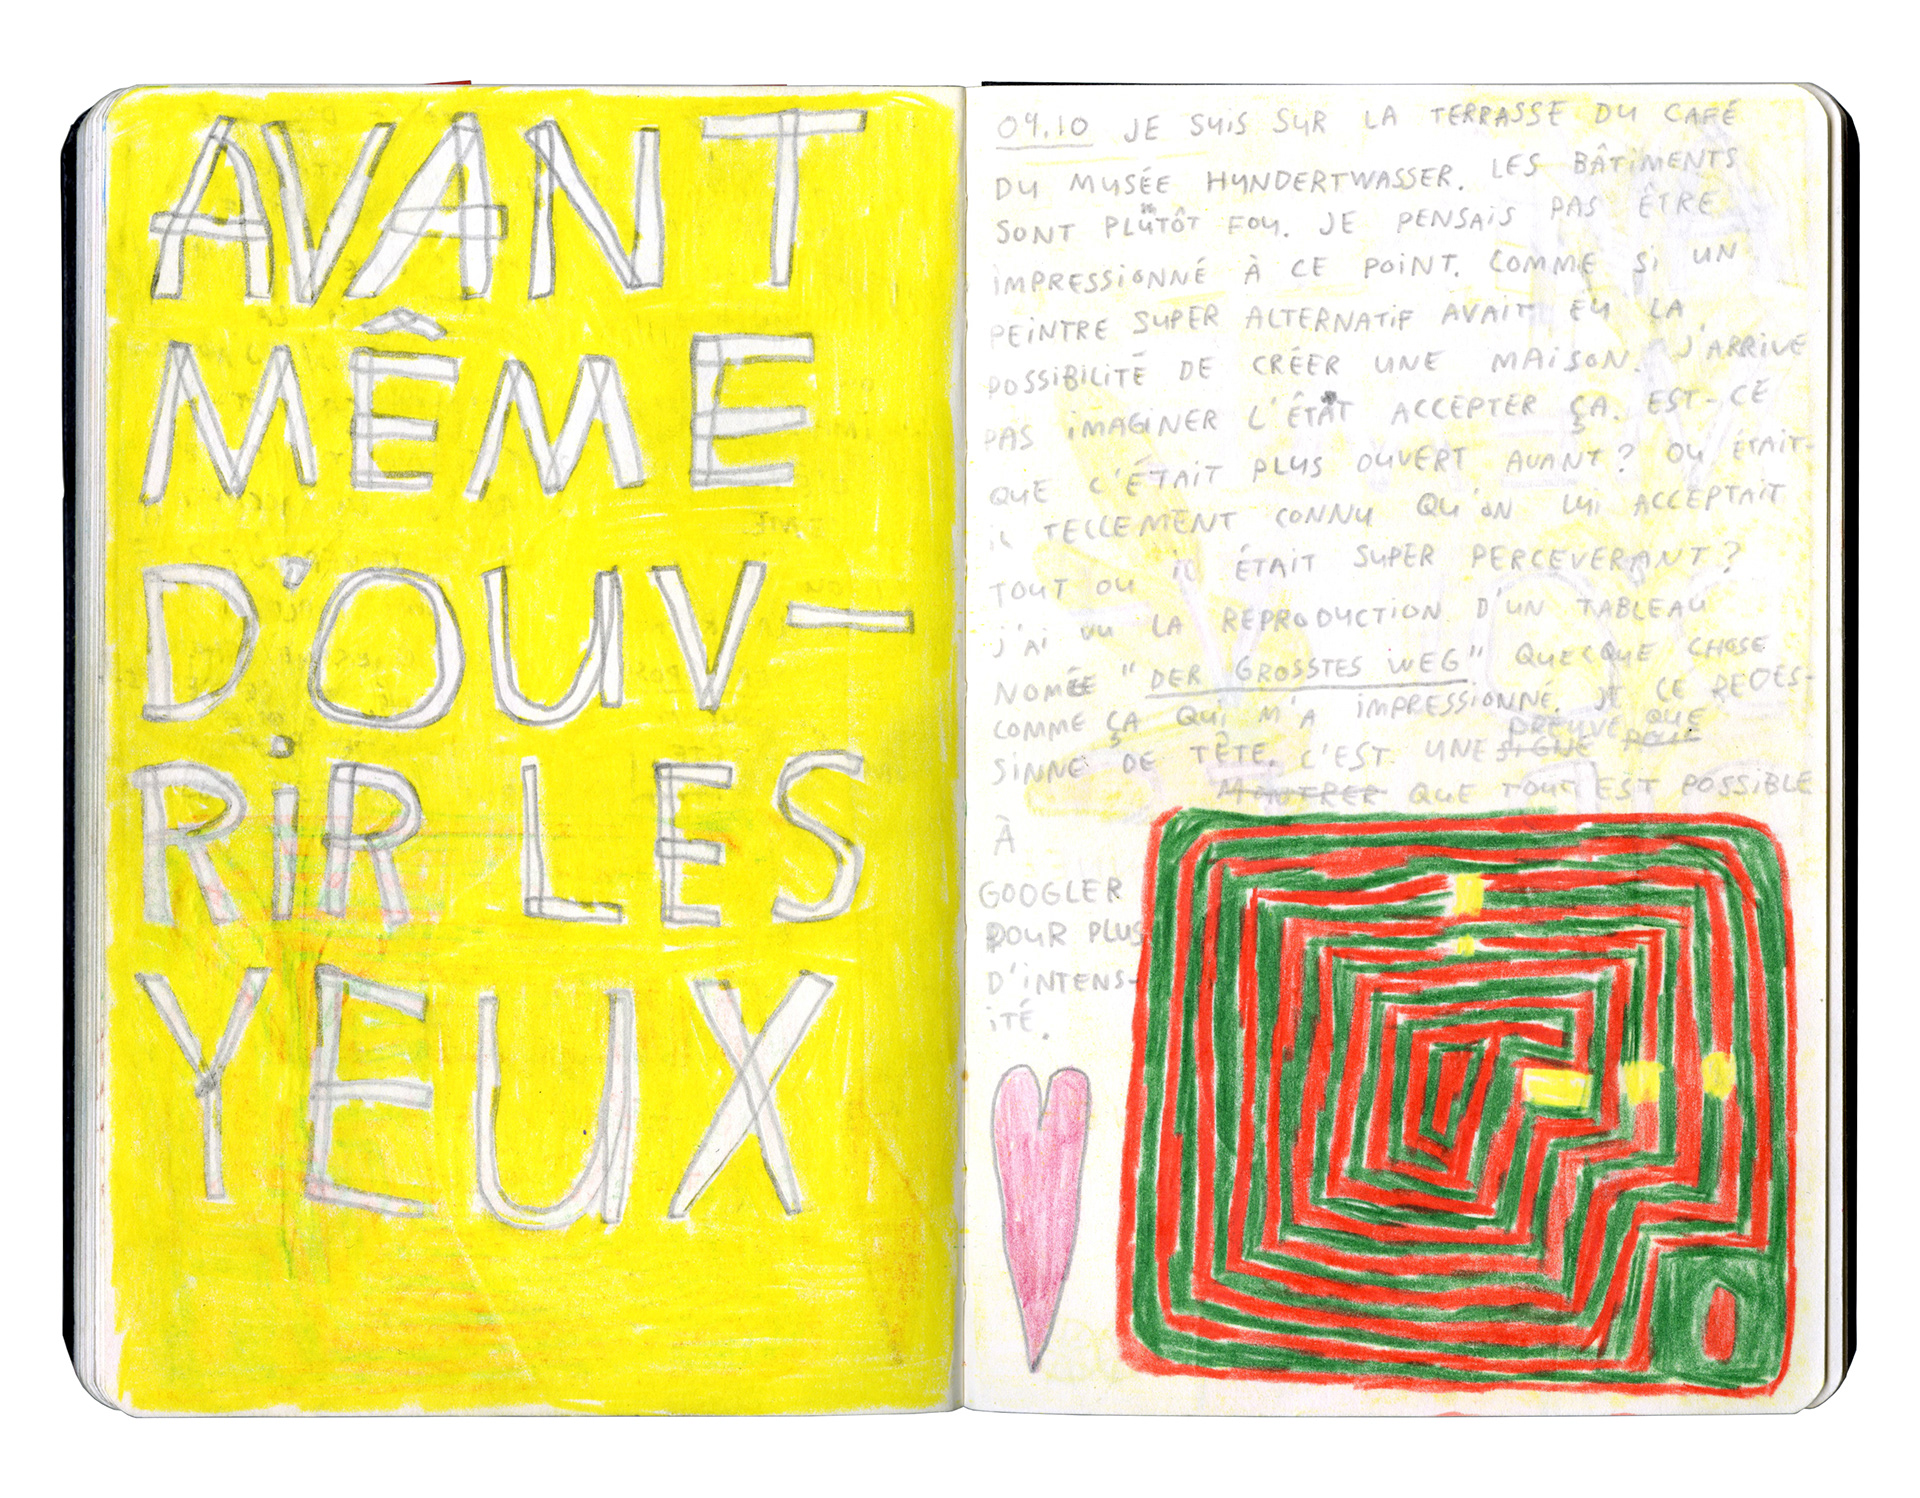 AVANT
MÊME
D'OUV-
RiR LES
YEUX
04.10 JE SUIS SUR LA TERRASSE DU CAFÉ
DU MUSÉE HUNDERTWASSER. LES BÂTiMENTS
SONT PLUTÔT FOU. JE PENSAIS PAS ÊTRE
IMPRESSIONNÉ À CE POINT. COMME Si UN
PEINTRE SUPER ALTERNATIF AVAIT EU LA
POSSIBILITÉ DE CRÉER UNE MAISON. J'ARRIVE
PAS IMAGINER L'ÉTAT ACCEPTER ÇA. EST-CE
QUE C'ÉTAIT PLUS OUVERT AVANT? OU ÉTAIT-
iL TELLEMENT CONNU QU'ON LUI ACCEPTAIT
TOUT OU iL ÉTAIT SUPER PERCEVERANT?
J'AI VU LA REPRODUCTION D'UN TABLEAU
NOMÉE "DER GROSSTES WEG" QUELQUE CHOSE
COMME ÇA QUI M'A IMPRESSIONNÉ. JE CE REDES-
SINNE DE TÊTE. C'EST UNE SIGNE PREUVE QUE
MONTRER QUE TOUT EST POSSIBLE
À
GOOGLER
POUR PLUS
D'INTENS-
iTÉ.